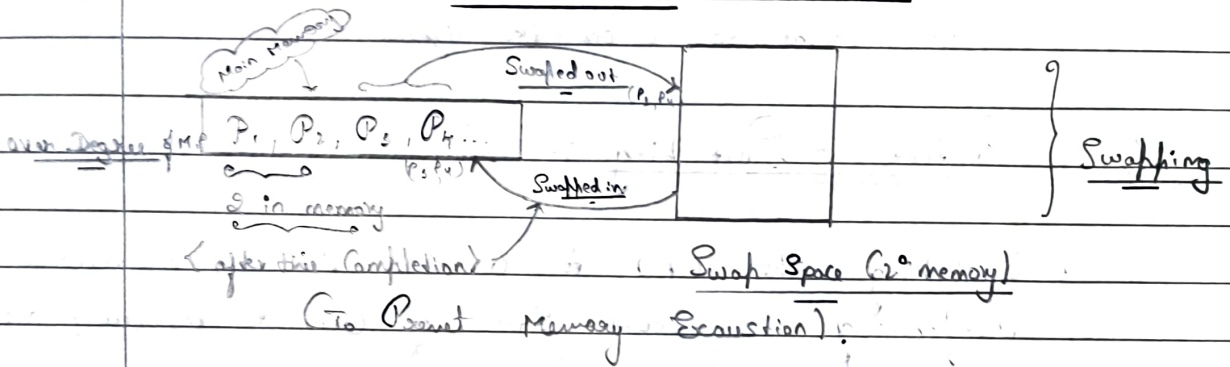 Main Memory
Swapped out
(P3, P4)
over Degree of M.P
P1, P2, P3, P4 ...
(P3, P4)
Swapping
Swapped in
2 in memory
<after this Completion>
Swap Space (2° memory)
(To Prevet Memory Exaustion).